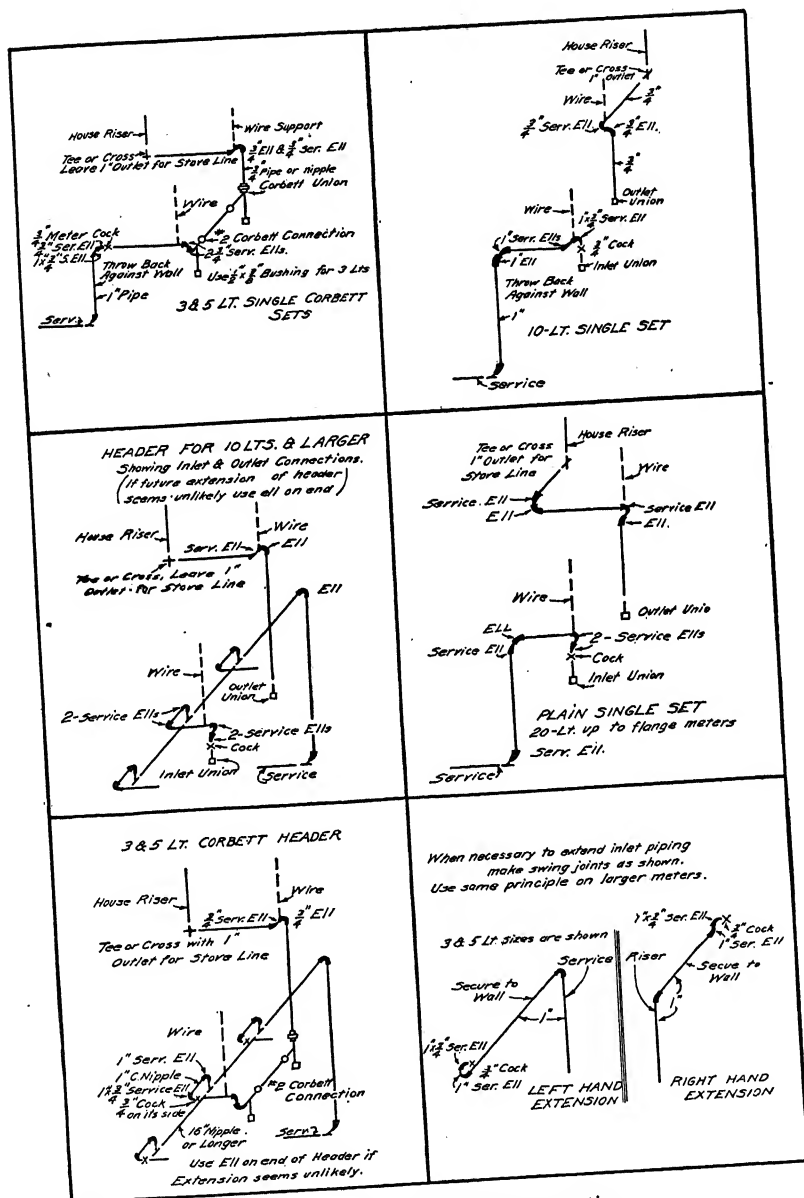 House Riser
Wire Support
Tee or Cross
Leave 1" Outlet for Stove Line
3/4" Ell & 3/4" Ser. Ell
3/4" Pipe or nipple
Corbett Union
Wire
3/4" Meter Cock
3/4" Ser. Ell
1"x3/4" S. Ell
#2 Corbett Connection
2 3/4" Serv. Ells.
Throw Back
Against Wall
Use 1/2" x 3/8" Bushing for 3 Lts
1" Pipe
Serv.
3 & 5 LT. SINGLE CORBETT
SETS
House Riser
Tee or Cross
1" Outlet
Wire
3/4"
3/4" Serv. Ell
3/4" Ell.
3/4"
Outlet
Union
Wire
1"x3/4" Serv. Ell
1" Serv. Ells
3/4" Cock
1" Ell
Inlet Union
Throw Back
Against Wall
1"
10-LT. SINGLE SET
Service
HEADER FOR 10 LTS. & LARGER
Showing Inlet & Outlet Connections.
(If future extension of header
seems unlikely use ell on end)
House Riser
Wire
Serv. Ell
Ell
Tee or Cross, Leave 1"
Outlet for Stove Line
Ell
Wire
Outlet
Union
2-Service Ells
2-Service Ells
Cock
Inlet Union
Service
Tee or Cross
1" Outlet for
Stove Line
House Riser
Wire
Service. Ell
Ell
Service Ell
Ell.
Wire
Outlet Unio
ELL
Service Ell
2-Service Ells
Cock
Inlet Union
PLAIN SINGLE SET
20-Lt. up to flange meters
Serv. Ell.
Service
3 & 5 LT. CORBETT HEADER
House Riser
Wire
3/4" Serv. Ell
3/4" Ell
Tee or Cross with 1"
Outlet for Stove Line
Wire
1" Serv. Ell
1" C. Nipple
1"x3/4" Service Ell
3/4" Cock
on its side
#2 Corbett
Connection
16" Nipple
or Longer
Serv.
Use Ell on end of Header if
Extension seems unlikely.
When necessary to extend inlet piping
make swing joints as shown.
Use same principle on larger meters.
3 & 5 Lt. sizes are shown
Secure to
Wall
Service
1"
1"x3/4" Ser. Ell
3/4" Cock
1" Ser. Ell
LEFT HAND
EXTENSION
1"x3/4" Ser. Ell
3/4" Cock
1" Ser. Ell
Riser
Secure to
Wall
1"
RIGHT HAND
EXTENSION